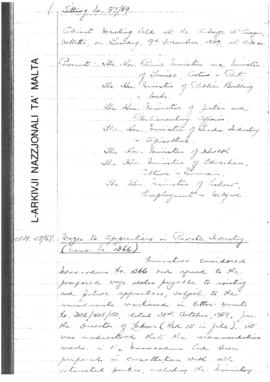 1. Sitting No. 57/69.
Cabinet Meeting held at the Auberge d'Aragon
Valletta on Tuesday, 9th December 1969, at
Present:- The Hon. Prime Minister and Minister
of Finance, Customs & Port.
The Hon. Minister of Public Building
& Works
The Hon. Minister of Justice and
Parliamentary Affairs
The Hon. Minister of Trade, Industry
& Agriculture
The Hon. Minister of Health
The Hon. Minister of Education,
Culture & Tourism
The Hon. Minister of Labour,
Employment & Welfare
L-ARKIVJI NAZZJONALI TA' MALTA
Wages to Apprentices in Private Industry
(Memo No. 1366)
Ministers considered
Memorandum No. 1366 and agreed to the
proposed wage scales payable to existing
and future apprentices, subject to the
amendments mentioned in letter
dated 31st October, 1969, from
the Director of Labour (Red 15 in file), it
was understood that the recommendations
made in the Memorandum had been
prepared in consultation with all
interested parties, including the Ministry